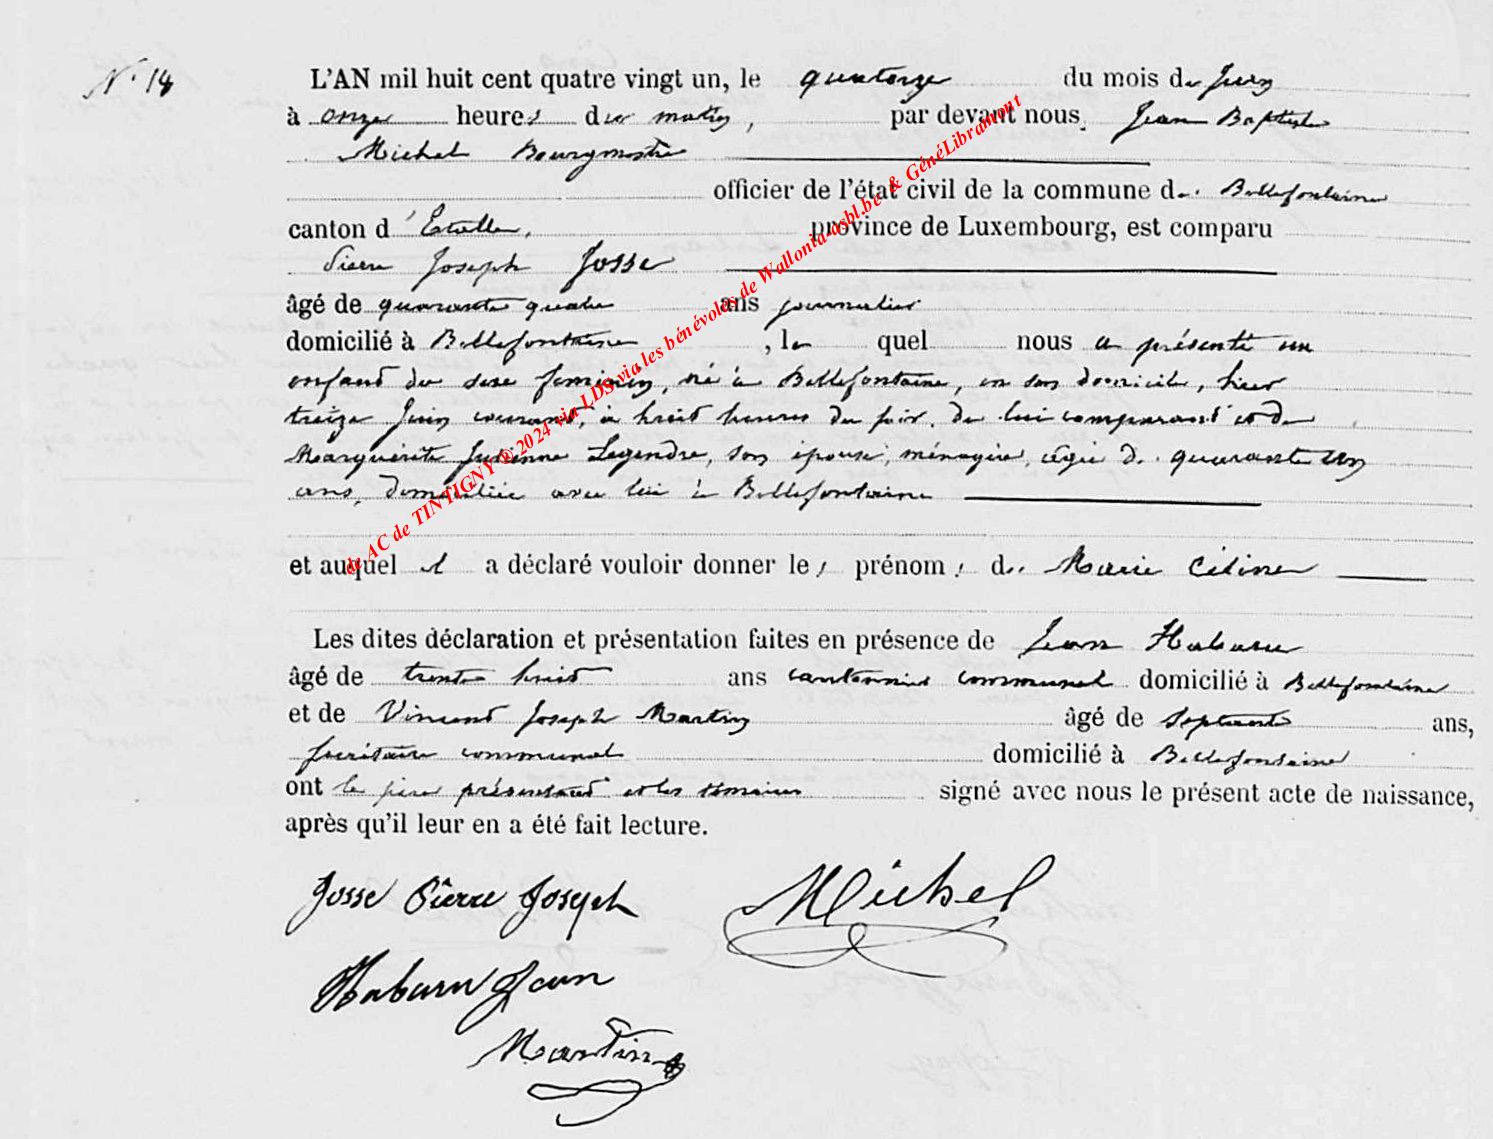 N° 14
L'AN mil huit cent quatre vingt un, le quatorze du mois de Juin
à onze heures du matin, par devant nous Jean Baptiste
Michel Bourgmestre
officier de l'état civil de la commune de Bellefontaine
canton d'Etalle, province de Luxembourg, est comparu
Pierre Joseph Josse
âgé de quarante quatre ans journalier
domicilié à Bellefontaine, le quel nous a présenté un
enfant du sexe féminin, né à Bellefontaine, en son domicile, hier
treize Juin courant, à huit heures du soir, de lui comparant et de
Marguerite Julienne Legendre, son épouse, ménagère, âgée de quarante un
ans, domiciliée avec lui à Bellefontaine
et auquel il a déclaré vouloir donner les prénoms de Marie Céline
Les dites déclaration et présentation faites en présence de Jean Habaru
âgé de trente huit ans cantonnier communal domicilié à Bellefontaine
et de Vincent Joseph Martin âgé de septante ans,
secrétaire communal domicilié à Bellefontaine
ont le père présentant et les témoins signé avec nous le présent acte de naissance,
après qu'il leur en a été fait lecture.
Josse Pierre Joseph Michel
Habaru Jean
Martin
de AC de TINTIGNY © 2024 via LDS via les bénévoles de Wallonia-asbl.be & GénéLibramont